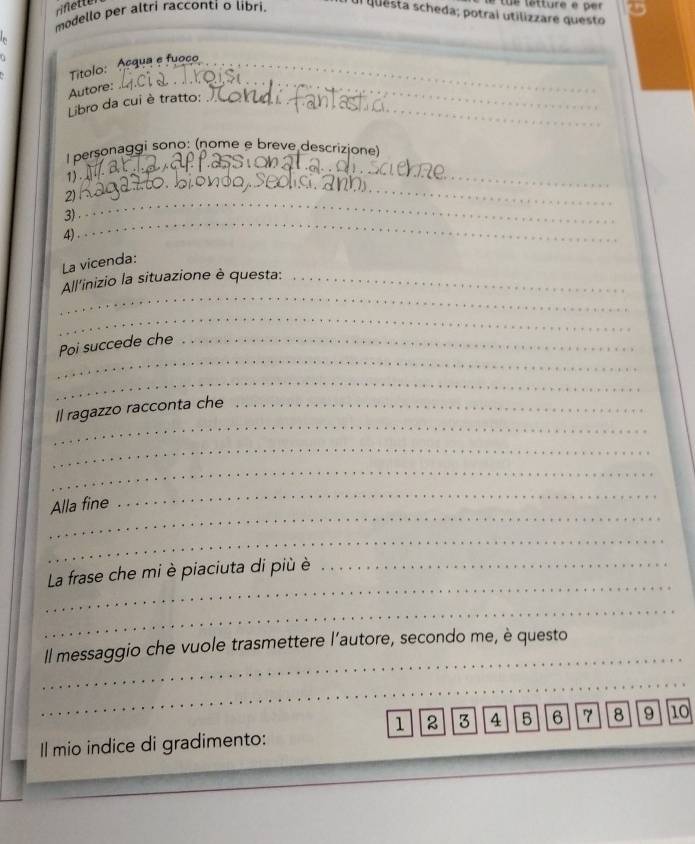 modello per altri racconti o libri.
questa scheda; potrai utilizzare questo
Titolo: Acqua e fuoco
Autore: Licia Troisi
Libro da cui è tratto: Mondi fantastici
I personaggi sono: (nome e breve descrizione)
1) Marta, appassionata di scienze
2) Ragazzo biondo, sedici anni
3)
4)
La vicenda:
All'inizio la situazione è questa:
Poi succede che
Il ragazzo racconta che
Alla fine
La frase che mi è piaciuta di più è
Il messaggio che vuole trasmettere l'autore, secondo me, è questo
Il mio indice di gradimento: 1 2 3 4 5 6 7 8 9 10